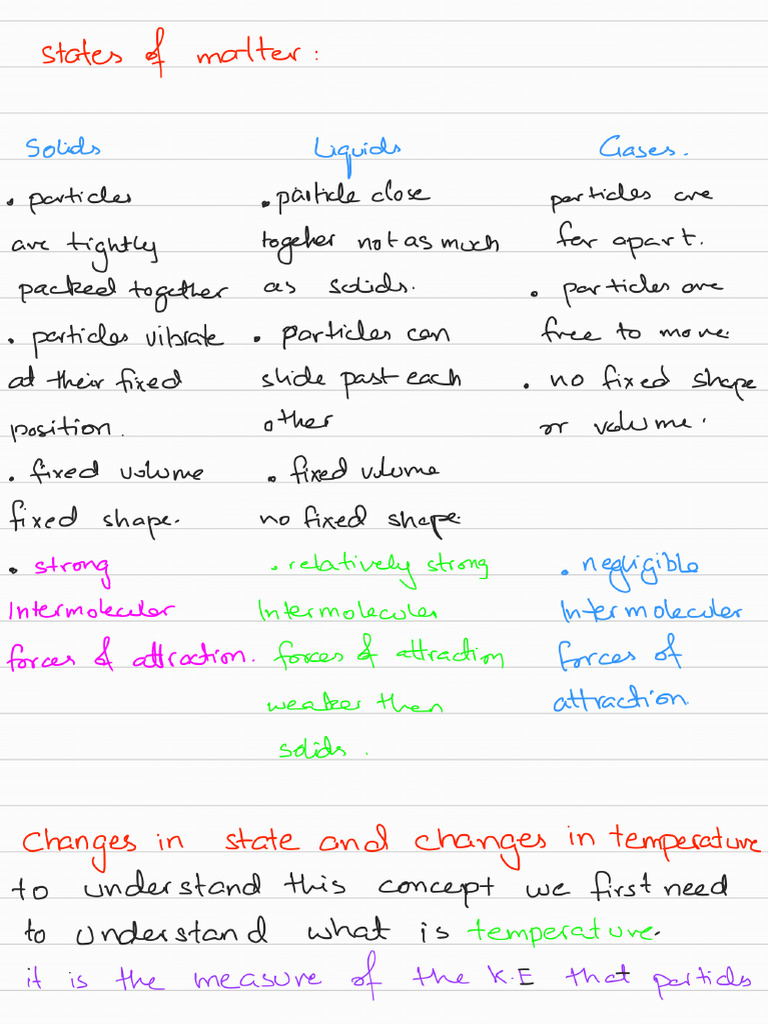 states of matter:
Solids
• particles
are tightly
packed together
• particles vibrate
at their fixed
position.
• fixed volume
fixed shape.
• strong
Intermolecular
forces of attraction.
Liquids
• particle close
together not as much
as solids.
• particles can
slide past each
other
• fixed volume
no fixed shape.
• relatively strong
Intermolecular
forces of attraction
weaker then
solids.
Gases.
particles are
far apart.
• particles are
free to move.
• no fixed shape
or volume.
• negligible
Intermolecular
forces of
attraction.
Changes in state and changes in temperature
to understand this concept we first need
to understand what is temperature.
it is the measure of the K.E that particles